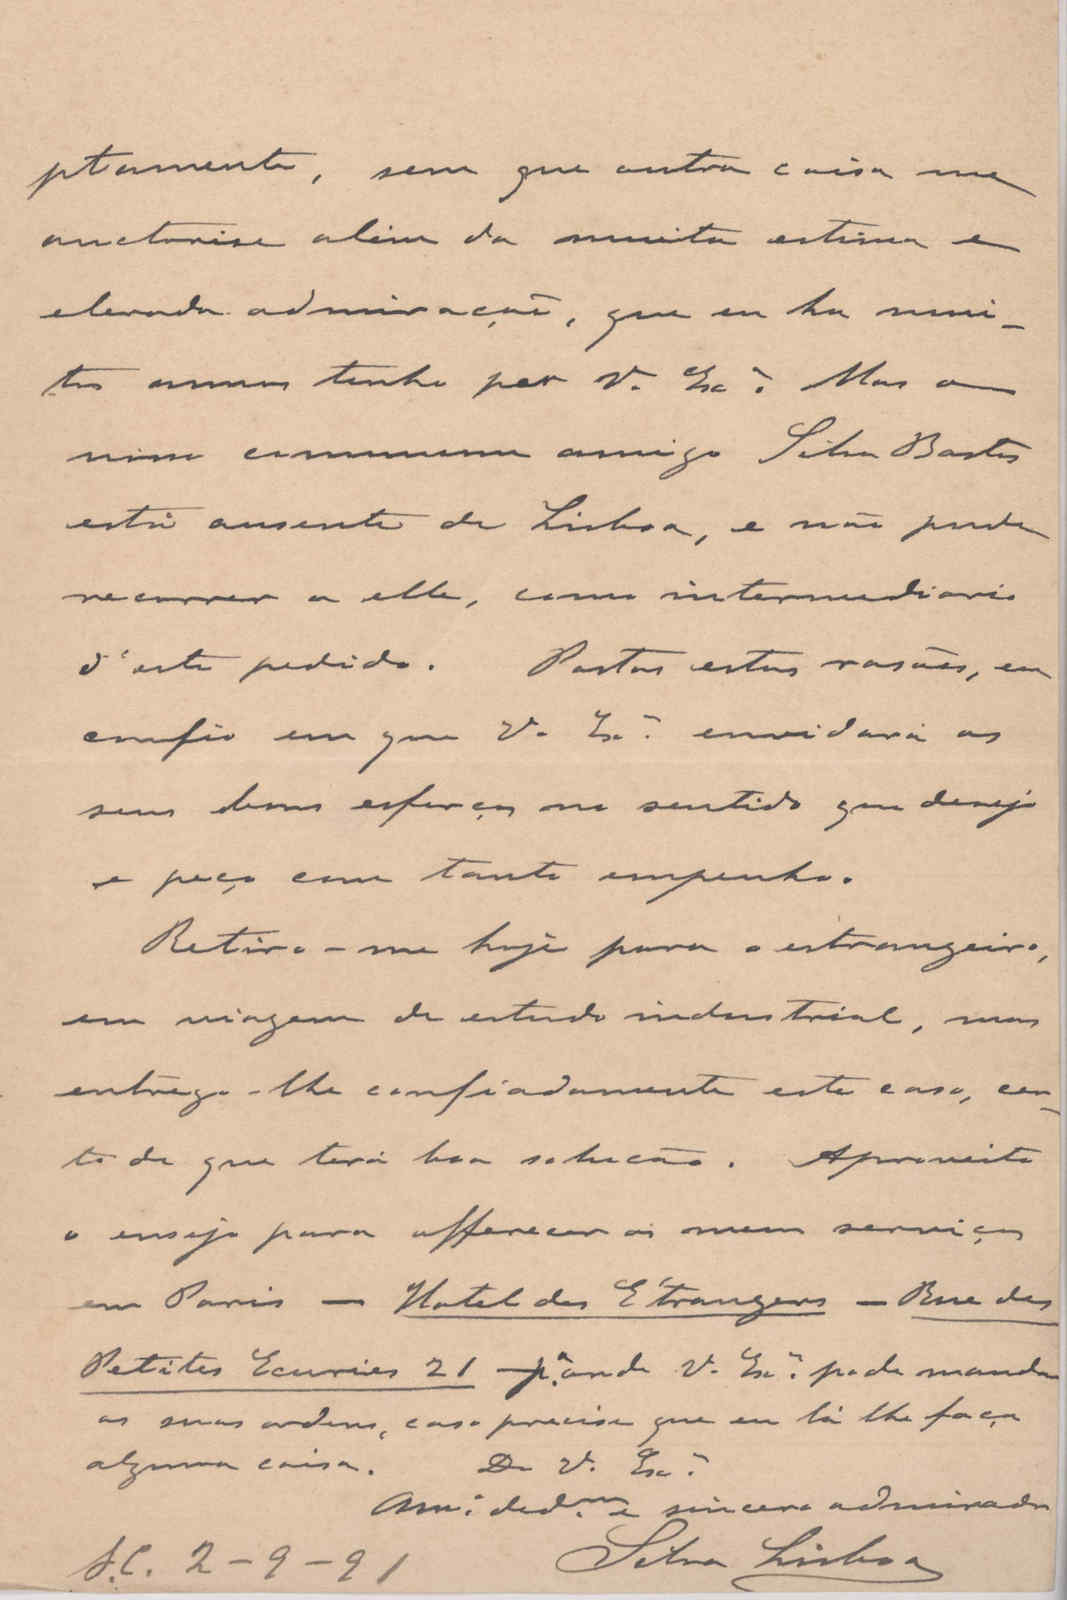 ptamente, sem que outra coisa me
auctorise além da muita estima e
elevada admiração, que eu ha mui-
tos annos tenho por V. Exª. Mas o
nosso commum amigo Silva Bastos
está ausente de Lisboa, e não pude
recorrer a elle, como intermediario
d'este pedido. Postas estas rasões, eu
confio em que V. Exª. envidará os
seus bons esforços no sentido que desejo
e peço com tanto empenho.
Retiro-me hoje para o estrangeiro,
em viagem de estudo industrial, mas
entrego-lhe confiadamente este caso, cer-
to de que terá boa solução. Aproveito
o ensejo para offerecer os meus serviços
em Paris — Hotel des Étrangers — Rue des
Petites Ecuries 21 — pª. onde V. Exª. pode mandar
as suas ordens, caso precise que eu lá lhe faça
alguma coisa. De V. Exª.
Amº. dedmo. e sincero admirador
S.C. 2-9-91 Silva Lisboa